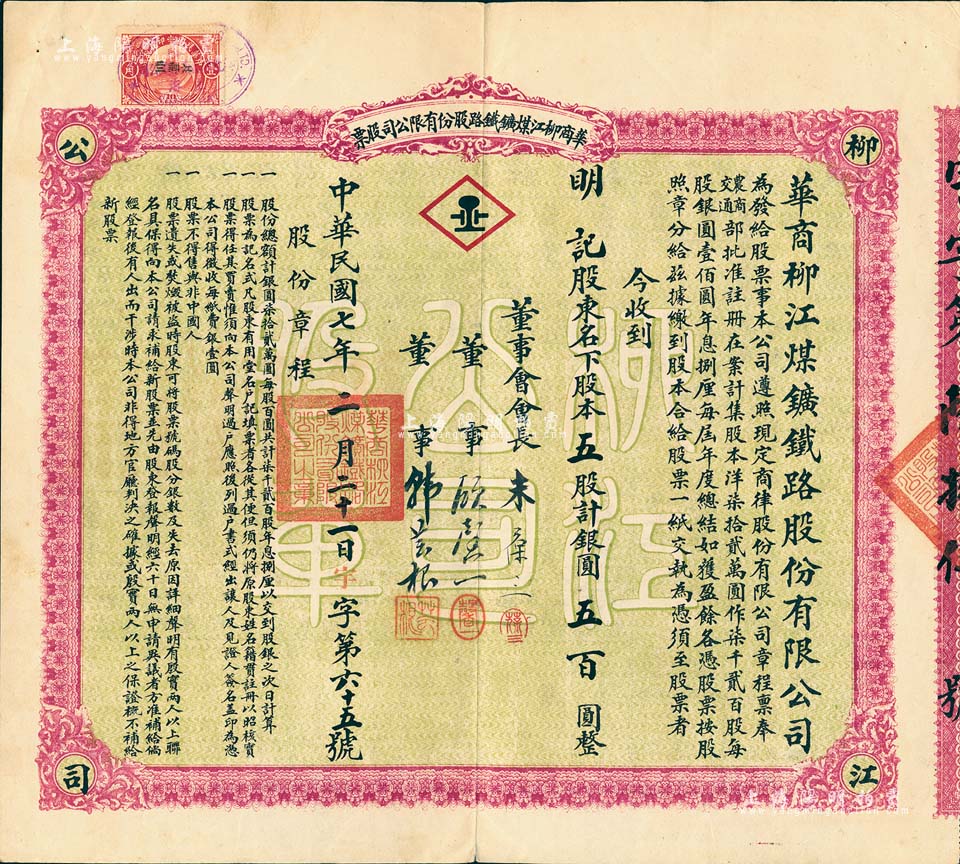 華商柳江煤鑛鐵路股份有限公司股票
柳
江
公
司
華商柳江煤鑛鐵路股份有限公司
為發給股票事本公司遵照現定商律股份有限公司章程稟奉
農商
交通部批准註冊在案計集股本洋柒拾貳萬圓作柒千貳百股每
股銀圓壹佰圓年息捌厘每屆年度總結如獲盈餘各憑股票按股
照章分給茲據繳到股本合給股票一紙交執為憑須至股票者
今收到
明 記股東名下股本五股計銀圓五百圓整
董事會會長
董事
董事
中華民國七年二月二十一日 字第六十五號
股份章程
一 股份總額計銀圓柒拾貳萬圓每股百圓共計柒千貳百股年息捌厘以交到股銀之次日計算
一 股票為記名式凡股東有用堂名戶記填票者各從其便但須仍將原股東姓名籍貫註冊以昭核實
一 股票得任其買賣惟須向本公司聲明過戶應照後列過戶書式經出讓人及見證人簽名蓋印為憑
本公司得徵收每紙費銀壹圓
一 股票不得售與非中國人
一 股票遺失或焚燬被盜時股東可將股票號碼股分銀數及失去原因詳細聲明有殷實兩人以上聯
名具保得向本公司請求補給新股票並先由股東登報聲明經六十日無申請異議者方准補給倘
經登報後有人出而干涉時本公司非得地方官廳判決之確據或殷實兩人以上之保證概不補給
新股票
柳江
公司
上海陽明拍賣
www.yangmingauction.com